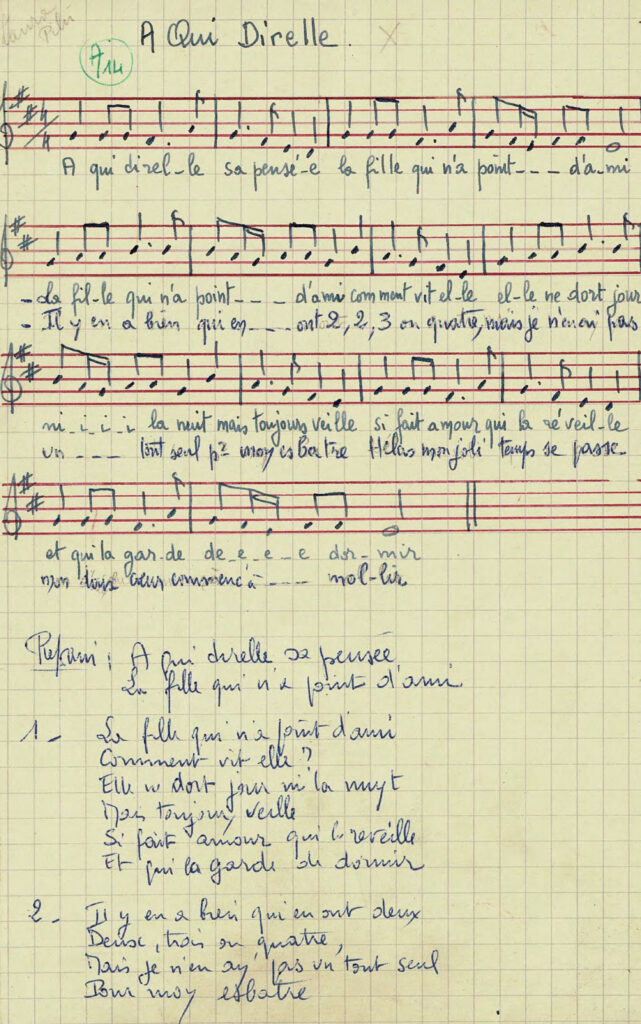 A Qui Direlle.
A 14
4/4
A qui direl-le sa pensé-e la fille qui n'a point--- d'a-mi
- La fil-le qui n'a point--- d'ami comment vit el-le el-le ne dort jour
- Il y en a bien qui en---- ont 2, 2, 3 ou quatre, mais je n'en ai pas
ni-i-i-i la nuit mais toujours veille si fait amour qui la réveil-le
un --- tout seul pr moy esbatre Hélas mon joli temps se passe-
et qui la gar-de de-e-e-e dor-mir
mon doux cœur commenc'à ---- mol-lir
Refrain : A qui direlle sa pensée
La fille qui n'a point d'ami
1- La fille qui n'a point d'ami
Comment vit elle ?
Elle ne dort jour ni la nuyt
Mais toujours veille
Si fait amour qui la reveille
Et qui la garde de dormir
2- Il y en a bien qui en ont deux
Deux, trois ou quatre,
Mais je n'en ay pas un tout seul
Pour moy esbatre